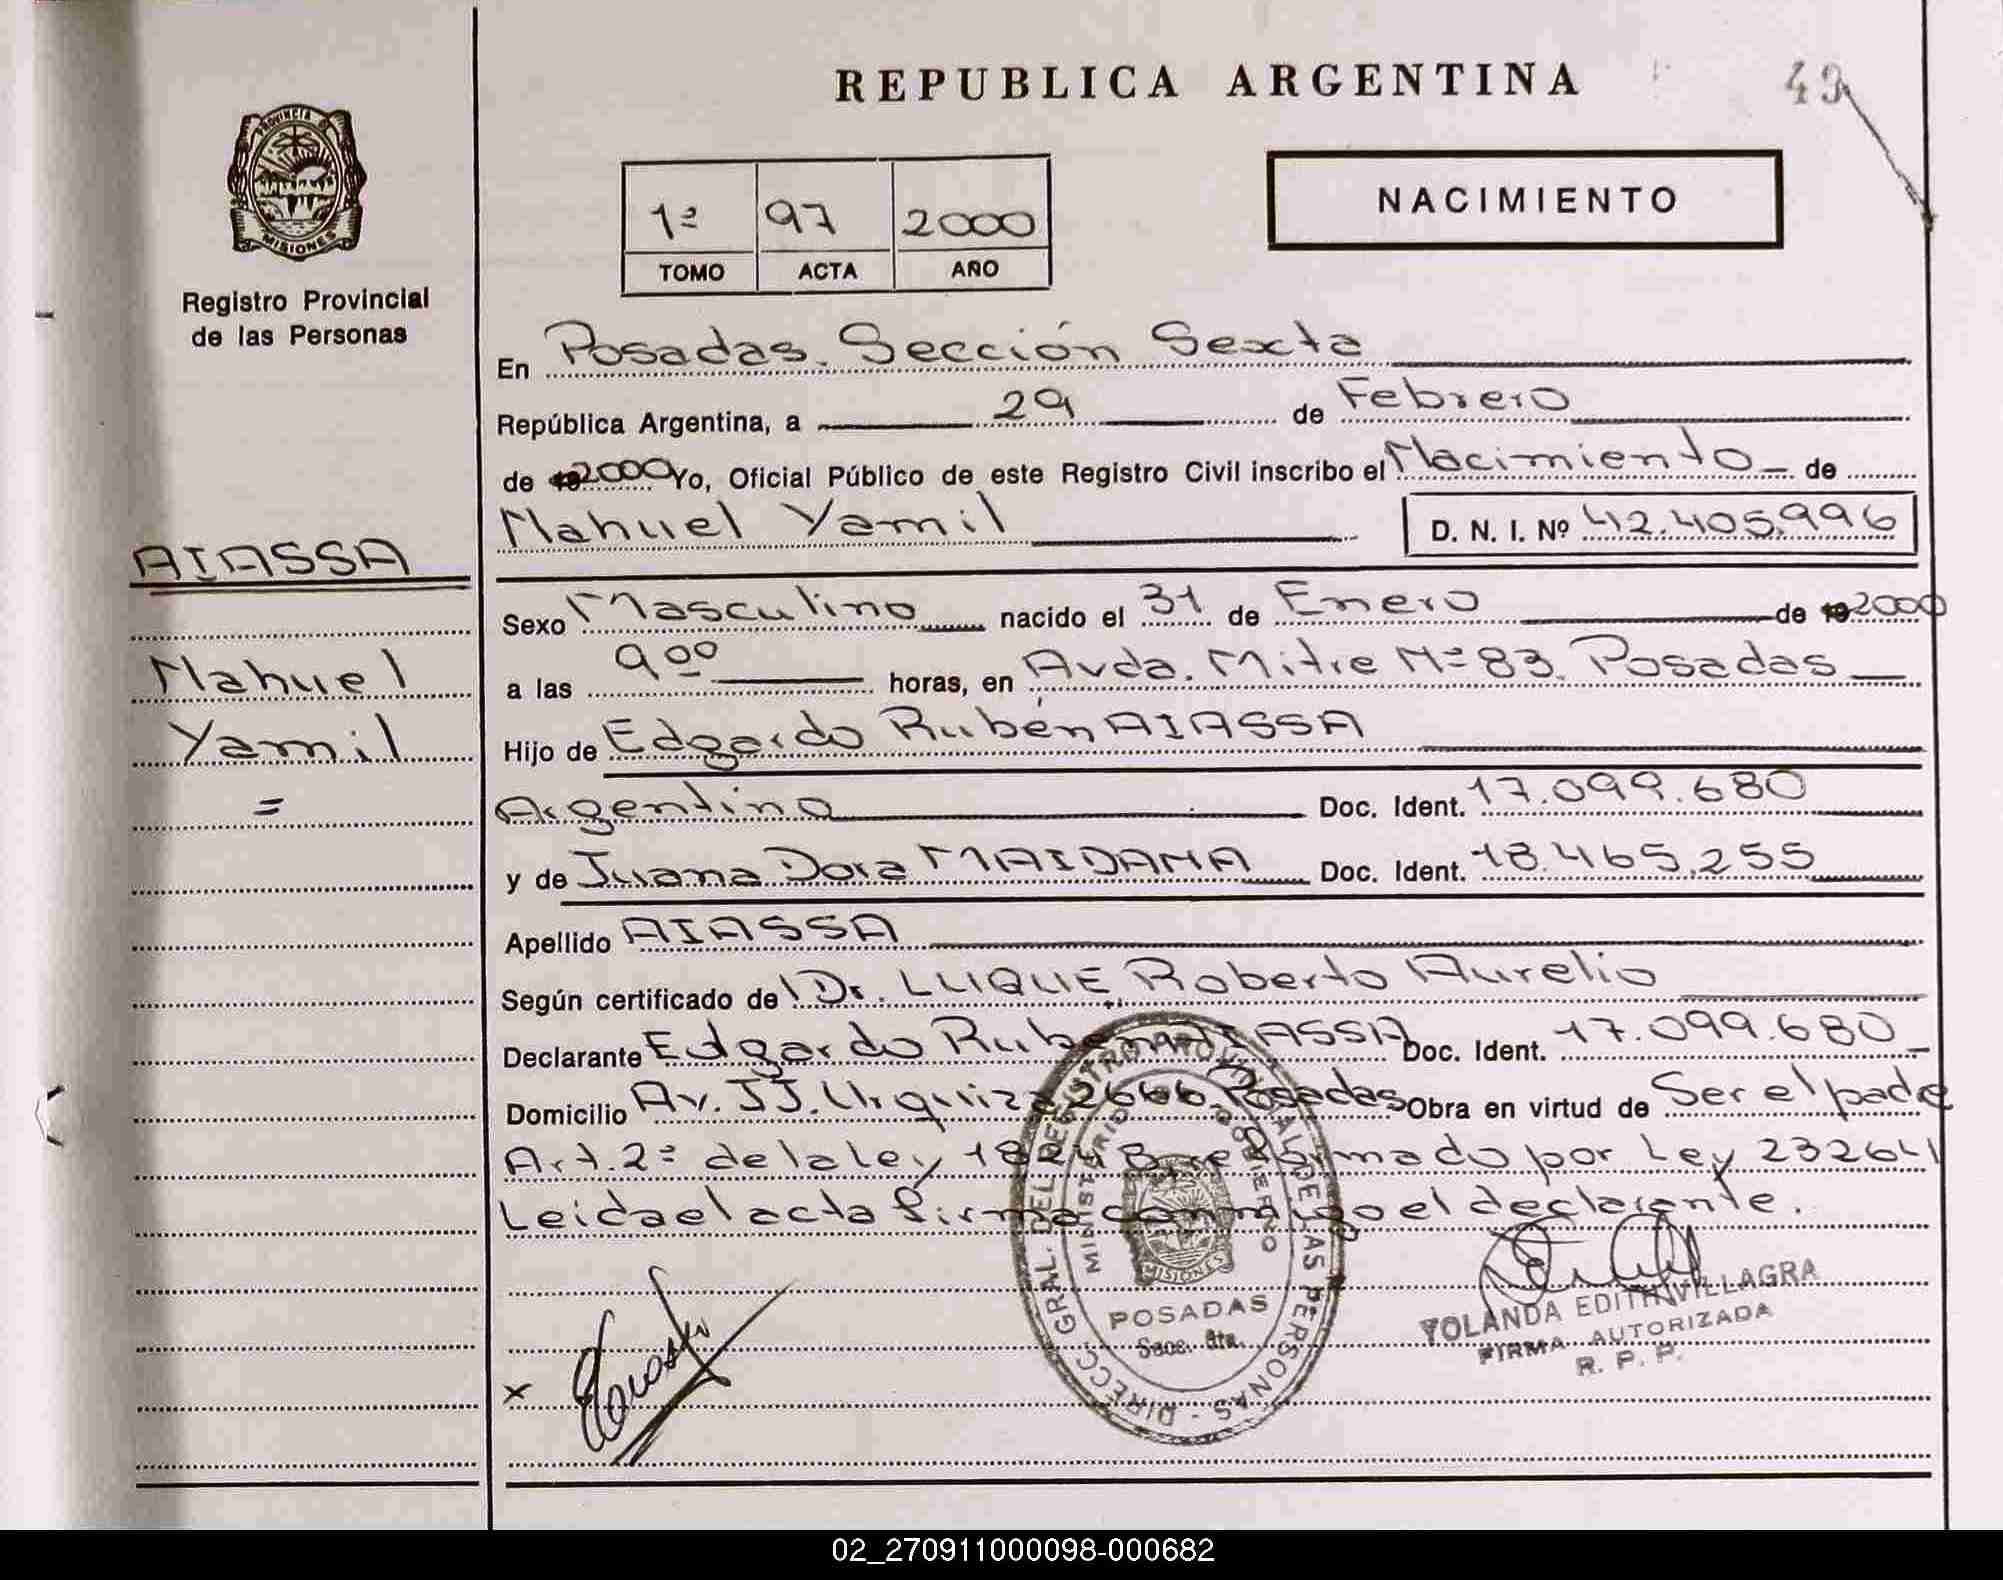 REPUBLICA ARGENTINA
43
PROVINCIA DE
MISIONES
Registro Provincial
de las Personas
1ª 97 2000
TOMO ACTA AÑO
NACIMIENTO
En Posadas. Sección Sexta
República Argentina, a 29 de Febrero
de 2000 Yo, Oficial Público de este Registro Civil inscribo el Nacimiento de
Nahuel Yamil D. N. I. Nº 42.405.996
AIASSA
Nahuel
Yamil
=
Sexo Masculino nacido el 31 de Enero de 2000
a las 9 00 horas, en Avda. Mitre Nº 83. Posadas
Hijo de Edgardo Rubén AIASSA
Argentino Doc. Ident. 17.099.680
y de Juana Dora MAIDANA Doc. Ident. 18.465.255
Apellido AIASSA
Según certificado de Dr. LUQUE Roberto Aurelio
Declarante Edgardo Ruben AIASSA Doc. Ident. 17.099.680
Domicilio Av. JJ. Urquiza 2666 Posadas Obra en virtud de Ser el padre
Art. 2º de la ley 18248 reformado por Ley 23264
Leida el acta firma conmigo el declarante.
DIRECC. GRAL. DEL REGISTRO PROVINCIAL DE LAS PERSONAS
MINISTERIO DE GOBIERNO
MISIONES
POSADAS
Secc. 6ta.
YOLANDA EDITH VILLAGRA
FIRMA AUTORIZADA
R. P. P.
x
02_270911000098-000682